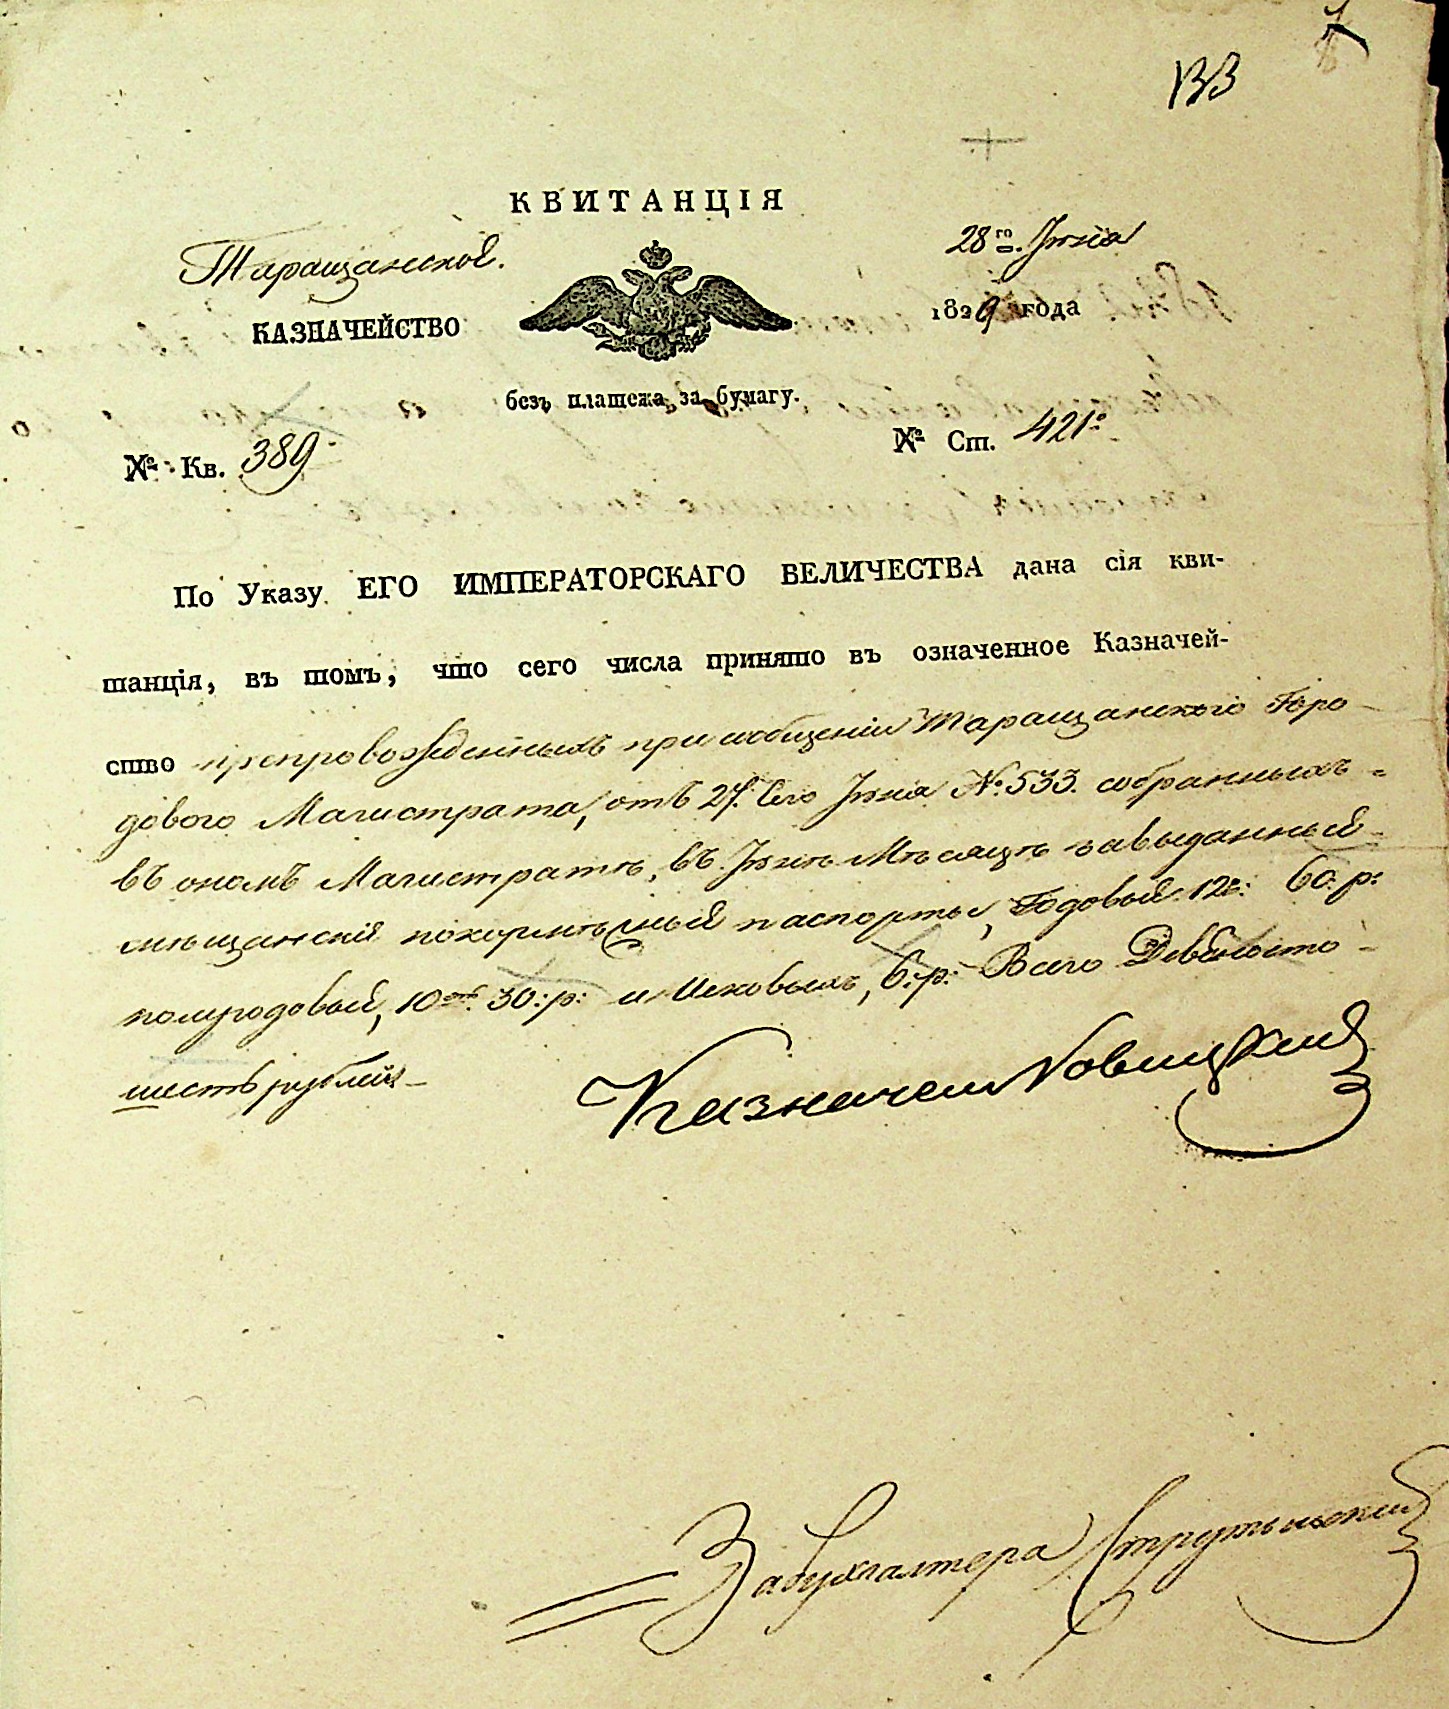 133
КВИТАНЦІЯ
Таращанское.
28го Іюня
КАЗНАЧЕЙСТВО
1829 года
безъ платежа за бумагу.
№ Кв. 389.
№ Ст. 421.
По Указу ЕГО ИМПЕРАТОРСКАГО ВЕЛИЧЕСТВА дана сія кви-
танція, въ томъ, что сего числа принято въ означенное Казначей-
ство препровожденныхъ при сообщеніи Таращанского Горо-
дового Магистрата, отъ 27. Сего Іюня №533. собранныхъ
въ ономъ Магистратѣ, въ Іюнѣ Мѣсяцѣ завыданный
мѣщанскій покормѣжный паспорты, Годовый 12: 60: р:
полугодовый, 10 30: р: и 6: р: Всего Девяносто
шесть рублей
Казначей Новицкий
За бухгалтера